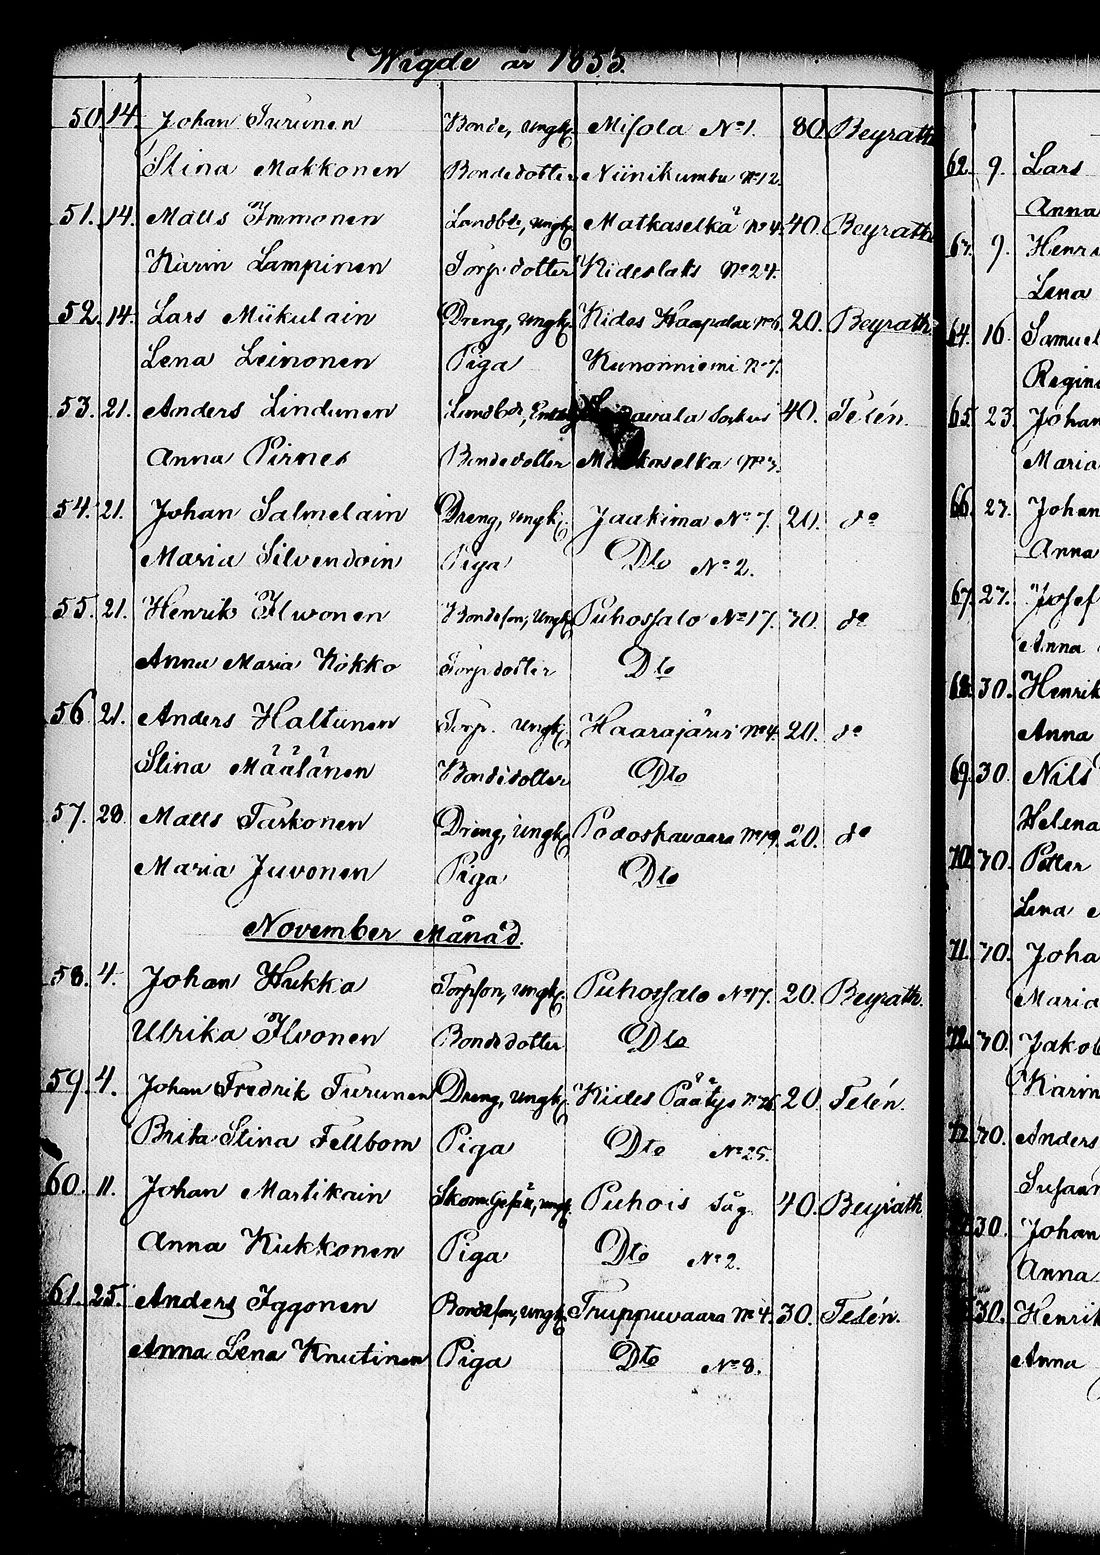 Wigde år 1855.
50. 14. Johan Turunen Bonde, Ungk. Misola No 1. 80. Beyrath
Stina Makkonen Bondedotter Niinikumbu No 12.
51. 14. Matts Immonen Landbde, Ungk. Matkaselkä No 4. 40. Beyrath
Karin Lampinen Torp. dotter Kideslaks No 24.
52. 14. Lars Miikulain Dreng, Ungk. Kides Haapalax No 6. 20. Beyrath
Lena Leinonen Piga Kunonniemi No 7.
53. 21. Anders Lindunen Landbde, 40. Telén.
Anna Pirnes Bondedotter Matkaselka No 3.
54. 21. Johan Salmelain Dreng, Ungk. Jaakima No 7. 20. do
Maria Silvendoin Piga Dto No 2.
55. 21. Henrik Ilwonen Bondeson, Ungk. Puhossalo No 17. 70. do
Anna Maria Kokko Torp dotter Dto
56. 21. Anders Haltunen Torp. Ungk. Haarajärvi No 4. 20. do
Stina Määtänen Bondedotter Dto
57. 28. Matts Tarkonen Dreng, Ungk. Podoskavaara No 19. 20. do
Maria Juvonen Piga Dto
November Månad.
58. 4. Johan Hukka Torpson, Ungk. Puhossalo No 17. 20. Beyrath.
Ulrika Ilvonen Bondedotter Dto
59. 4. Johan Fredrik Turunen Dreng, Ungk. Kides Päätys No 25. 20. Telén.
Brita Stina Fellbom Piga Dto No 25.
60. 11. Johan Martikain Skom. Gesäll, Ungk. Puhois Såg 40. Beyrath
Anna Kukkonen Piga Dto No 2.
61. 25. Anders Iggonen Bondeson, Ungk. Truppuvaara No 4. 30. Telén.
Anna Lena Knutinen Piga Dto No 8.
62. 9. Lars
Anna
9. Henri
Lena
64. 16. Samuel
Regin
65. 23. Johan
Maria
66. 27. Johan
Anna
67. 27. Josef
Anna
68. 30. Henrik
Anna
69. 30. Nils
Helena
70. 70. Petter
Lena
71. 70. Joha
Maria
72. 70. Jakob
Karin
70. Anders
Susann
30. Johan
Anna
30. Henrik
Anna